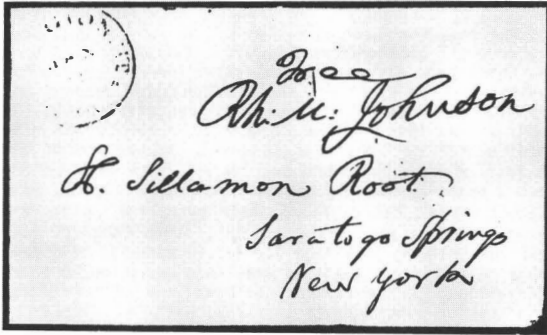 Free
Rh: M: Johnson
H. Sillamon Root.
Saratogo Springs
New York